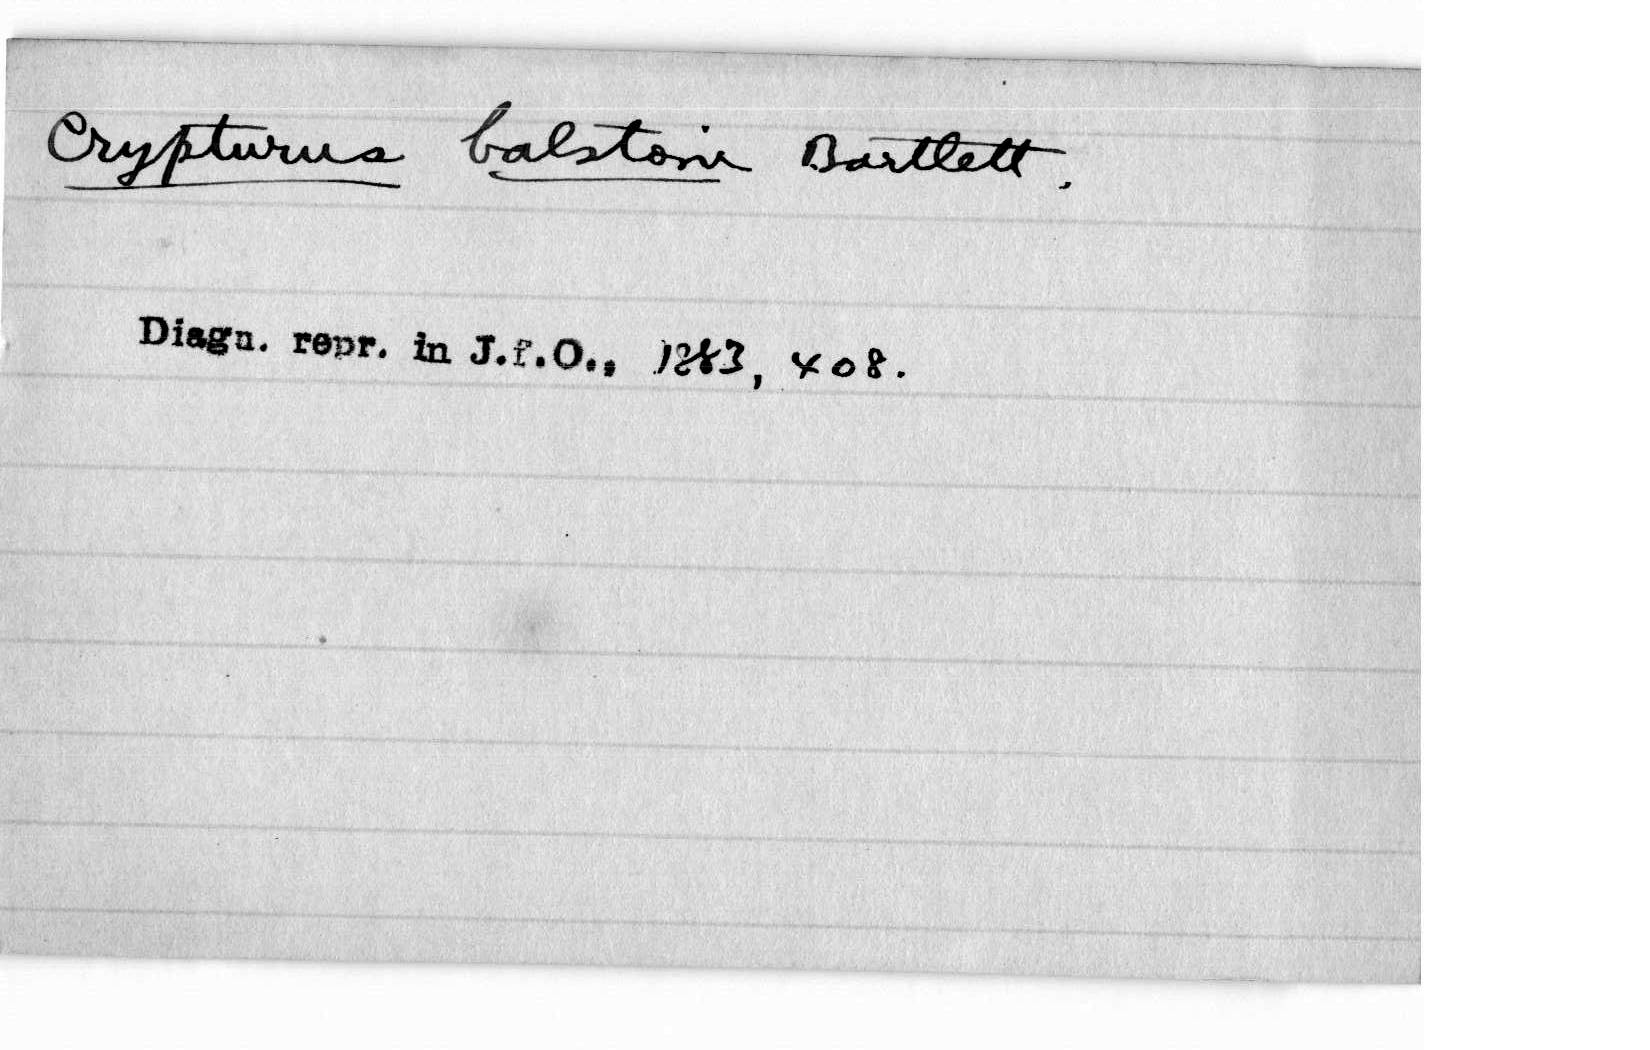 Crypturus balstoni Bartlett,
Diagn. repr. in J.f.O., 1883, 408.